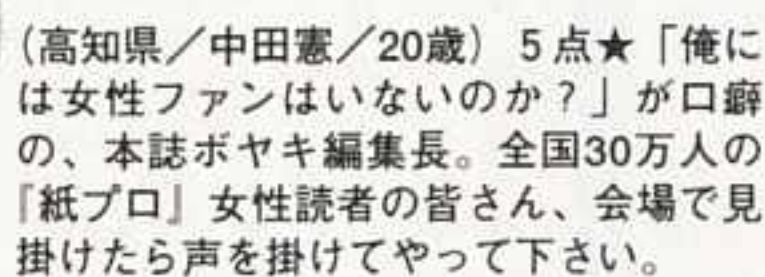 (高知県／中田憲／20歳) 5点★「俺に
は女性ファンはいないのか？」が口癖
の、本誌ボヤキ編集長。全国30万人の
『紙プロ』女性読者の皆さん、会場で見
掛けたら声を掛けてやって下さい。